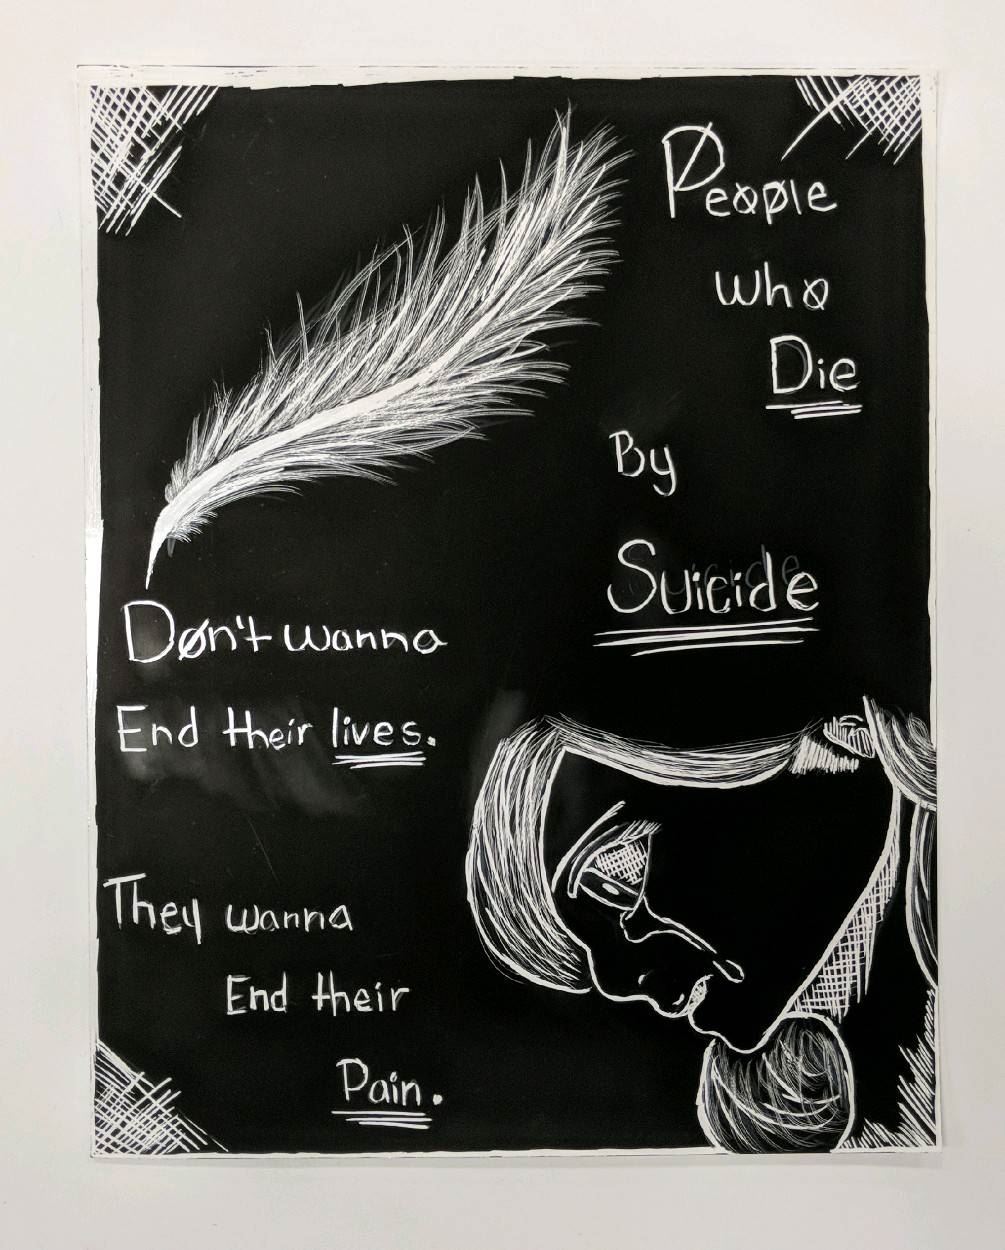 People
who
Die
By
Suicide
Don't wanna
End their lives.
They wanna
End their
Pain.